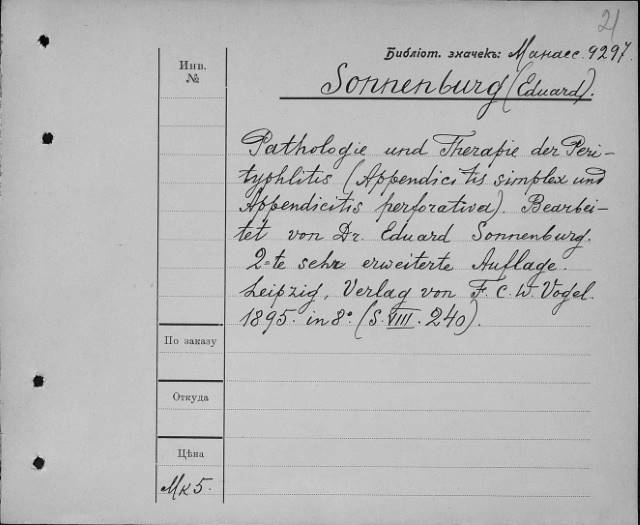 21
Библіот. значекъ: Манасс. 9297.
Инв.
№
Sonnenburg (Eduard).
Pathologie und Therapie der Peri-
typhlitis (Appendicitis simplex und
Appendicitis perforativa). Bearbei-
tet von Dr. Eduard Sonnenburg.
2=te sehr erweiterte Auflage.
Leipzig, Verlag von F. C. W. Vogel.
1895. in 8° (S. VIII. 240).
По заказу
Откуда
Цѣна
Мк 5.